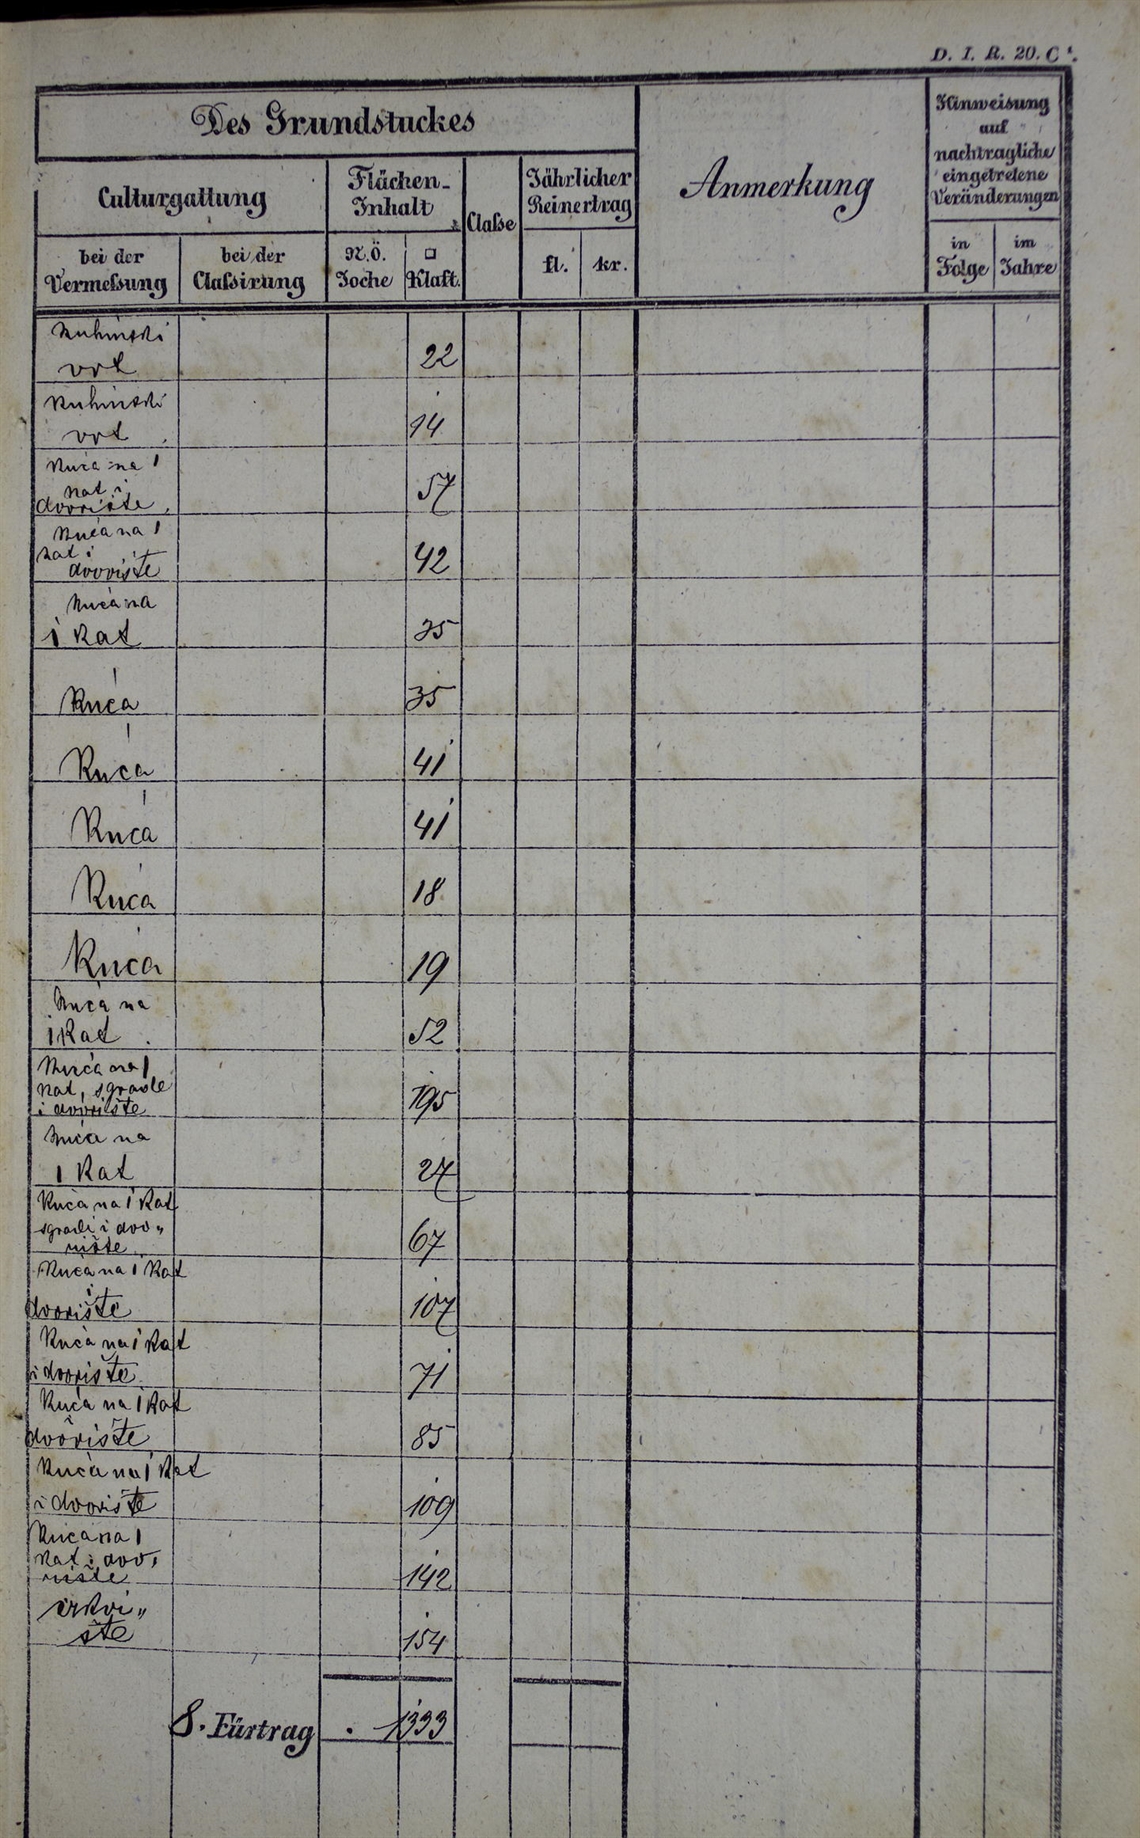 D. I. R. 20. C¹.
Des Grundstuckes
Anmerkung
Hinweisung
auf
nachtragliche
eingetretene
Veränderungen
Culturgattung
Flächen-
Inhalt
Claße
Jährlicher
Reinertrag
bei der
Vermeßung
bei der
Claßirung
N.Ö.
Joche
□
Klaft.
fl.
kr.
in
Folge
im
Jahre
Kuhinski
vrt 22
Kuhinski
vrt 14
Kuća na 1
kat i
dvorište 57
Kuća na 1
kat i
dvorište 42
Kuća na
1 kat 35
Kuća 35
Kuća 41
Kuća 41
Kuća 18
Kuća 19
Kuća na
1 Kat 52
Kuća na 1
kat, sgrade
i dvorište 195
Kuća na
1 Kat 27
Kuća na 1 Kat
sgrade i dvo„
rište 67
Kuća na 1 Kat
i
dvorište 107
Kuća na 1 Kat
i dvorište 71
Kuća na 1 Kat
i
dvorište 85
Kuća na 1 Kat
i dvorište 109
Kuća na 1
Kat i dvo„
rište 142
crkvi„
šte 154
8. Fürtrag . 1333